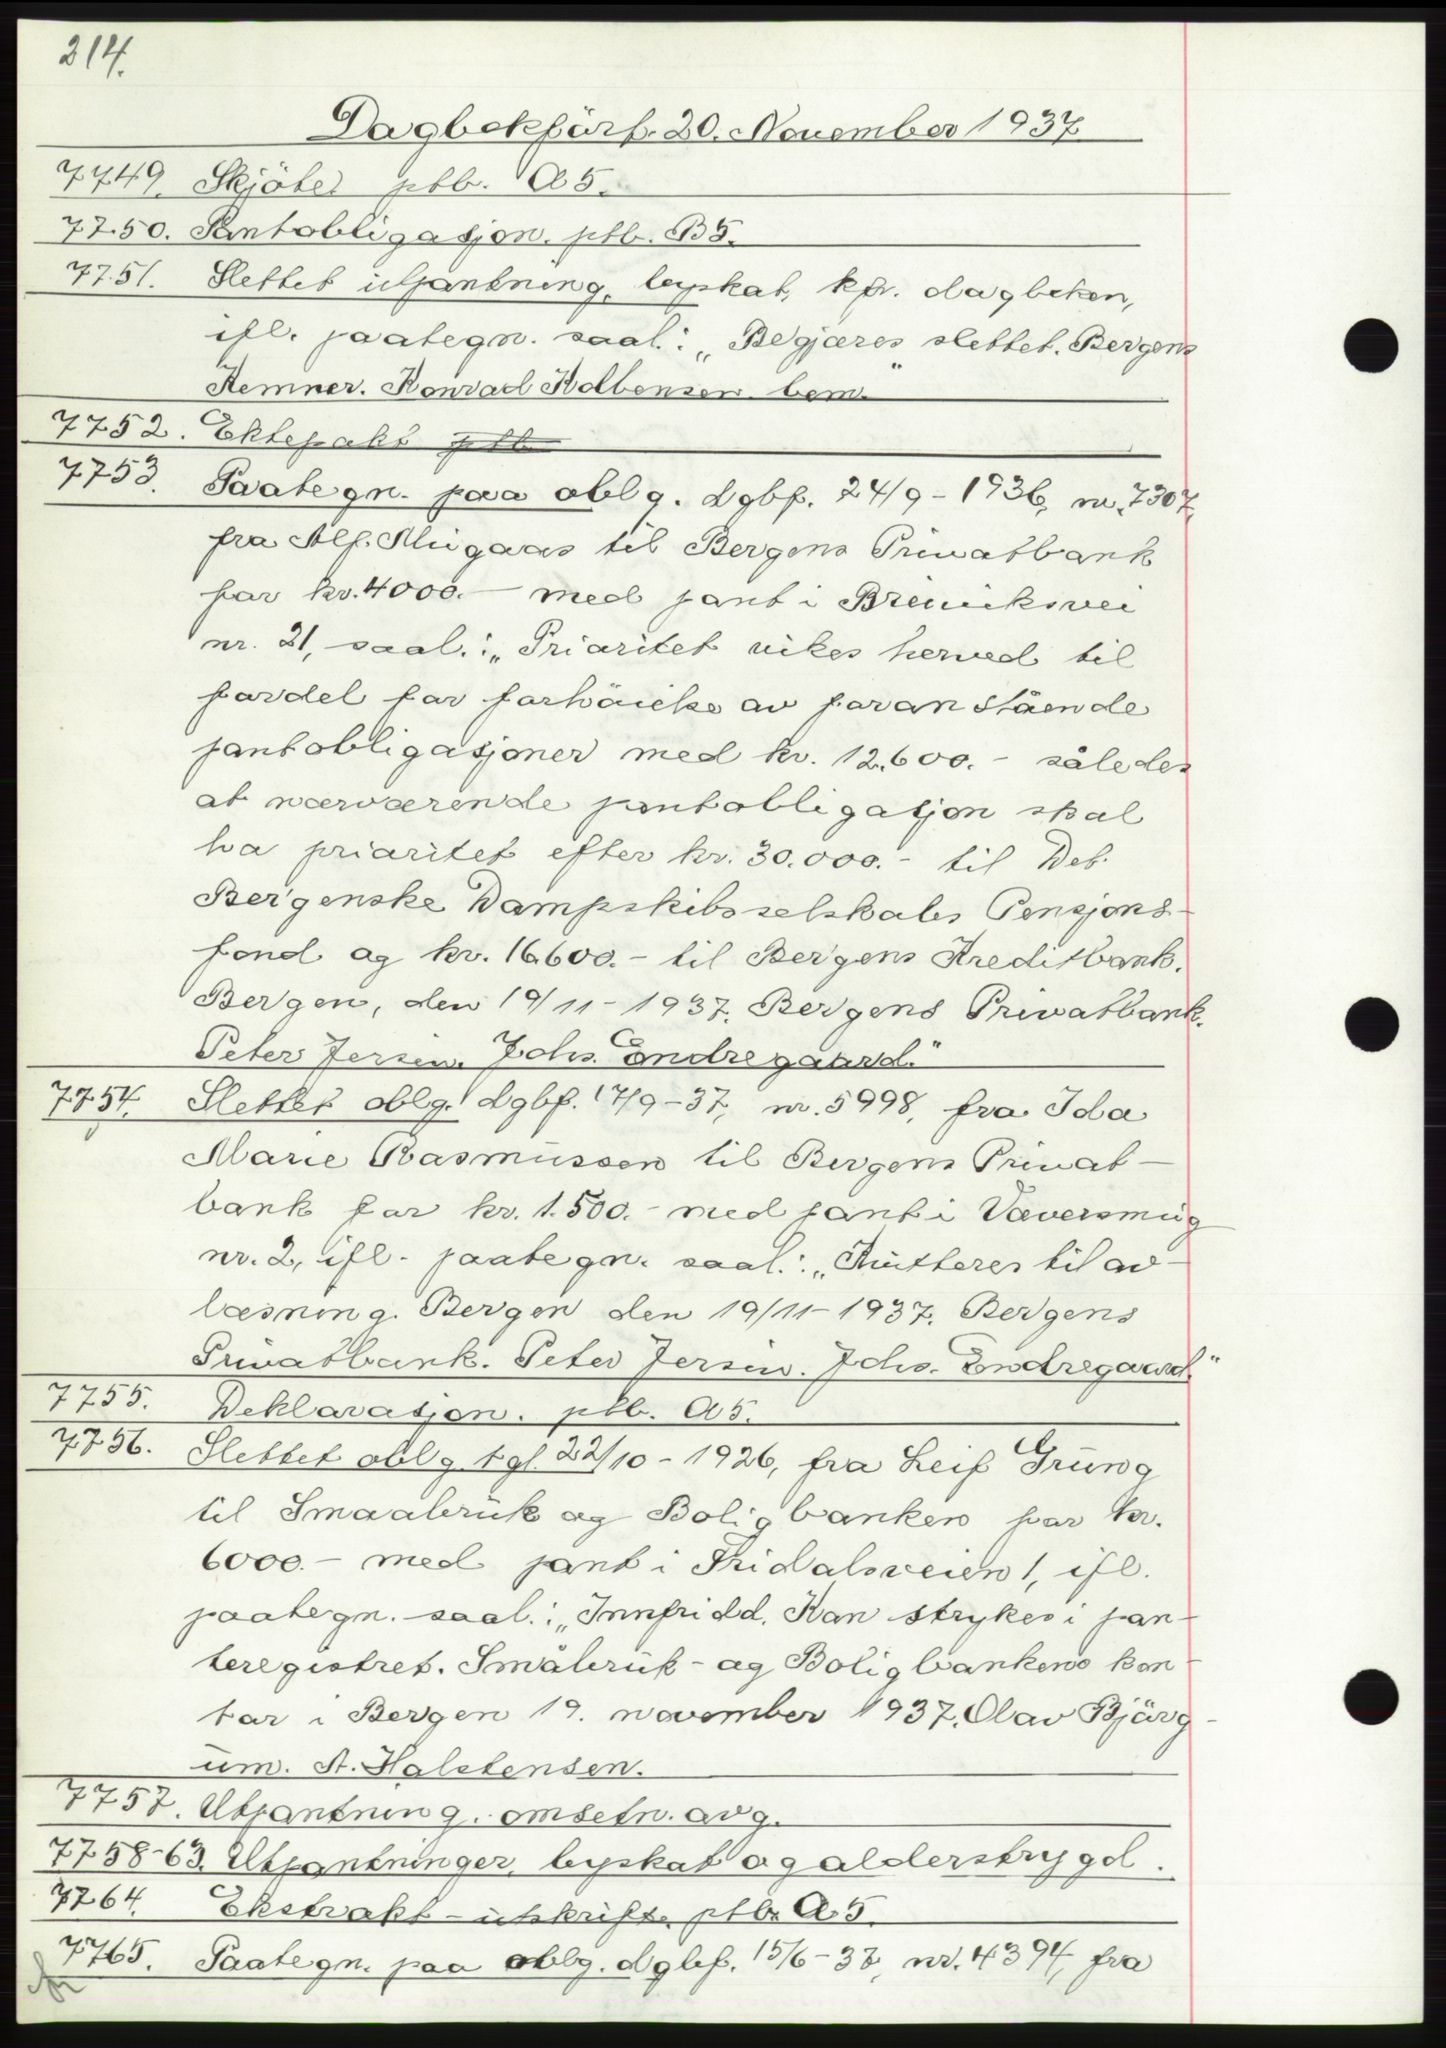 214.
Dagbokförf. 20. November 1937
7749. Skjöte ptb. A5.
7750. Pantobligasjon. ptb. B5.
7751. Slettet utpantning, byskat, kfr. dagboken,
ifl. paategn. saal.: „Begjæres slettet. Bergens
Kemner. Konrad bem."
7752. Ektepakt ptb
7753. Paategn. paa oblg. dgbf. 24/9-1936, nr. 7307,
fra Alf. til Bergens Privatbank
for kr. 4000.- med pant i
nr. 21, saal.: „Prioritet vikes herved til
fordel for forhöielse av foranstående
pantobligasjoner med kr. 12.600.- således
at nærværende pantobligasjon skal
ha prioritet efter kr. 30.000.- til Det
Bergenske Dampskibsselskabs Pensjons-
fond og kr. 16600.- til Bergens Kreditbank.
Bergen, den 19/11-1937. Bergens Privatbank.
Peter Jersin. Johs. Endregaard."
7754. Slettet oblg. dgbf. 17/9-37, nr. 5998, fra Ida
Marie Rasmussen til Bergens Privat-
bank for kr. 1.500.- med pant i Væversmug
nr. 2, ifl. paategn. saal.: „Kvitteres til av-
læsning. Bergen den 19/11-1937. Bergens
Privatbank. Peter Jersin. Johs. Endregaard."
7755. Deklarasjon. ptb. A5.
7756. Slettet oblg tgl. 22/10-1926, fra Leif Grung
til Smaabruk og Boligbanken for kr.
6000.- med pant i Fridalsveien 1, ifl.
paategn. saal.: „Innfridd. Kan strykes i pan-
teregistret. Småbruk- og Boligbankens kon-
tor i Bergen 19. november 1937. Olav Bjørg-
um. A. Halstensen.
7757. Utpantning. omsetn. avg.
7758-63. Utpantninger, byskat og alderstrygd.
7764. Ekstrakt-utskrift. ptb. A5.
7765. Paategn. paa oblg. dgbf. 15/6-37, nr. 4394, fra